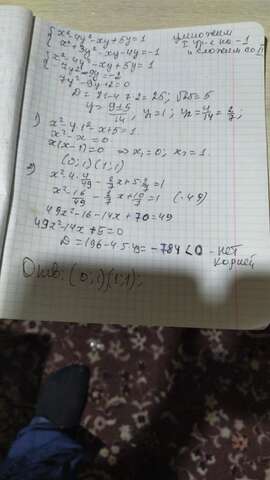 { x²-4y²-xy+5y=1
{ x²+3y²-xy-4y=-1
умножим I ур-е на -1 и сложим со II
{ x²-4y²-xy+5y=1
{ 7y²-9y=-2
7y²-9y+2=0
D=81-4·7·2=25; √25=5
y=9±5/14, y₁=1; y₂=4/14=2/7;
1) x²-4·1²-x+5=1
x²-x=0
x(x-1)=0 ⇒ x₁=0; x₂=1.
(0;1)(1;1)
2) x²-4·4/49-2/7x+5·2/7=1
x²-16/49-2/7x+10/7=1 (·49)
49x²-16-14x+70=49
49x²-14x+5=0
D=196-4·5·49=-784<0 - нет корней
Отв: (0;1)(1;1);